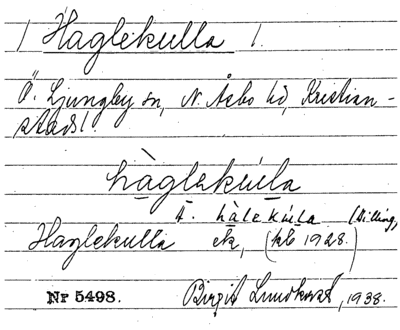 1 Haglekulla 1.
Ö. Ljungby sn, N. Åsbo hd, Kristian-
stads l.
hàglekúla
A. hàlekúla (Billing,
Haglekulla ek, (kb 1928.)
Nr 5498. Birgit Lundkvist, 1938.